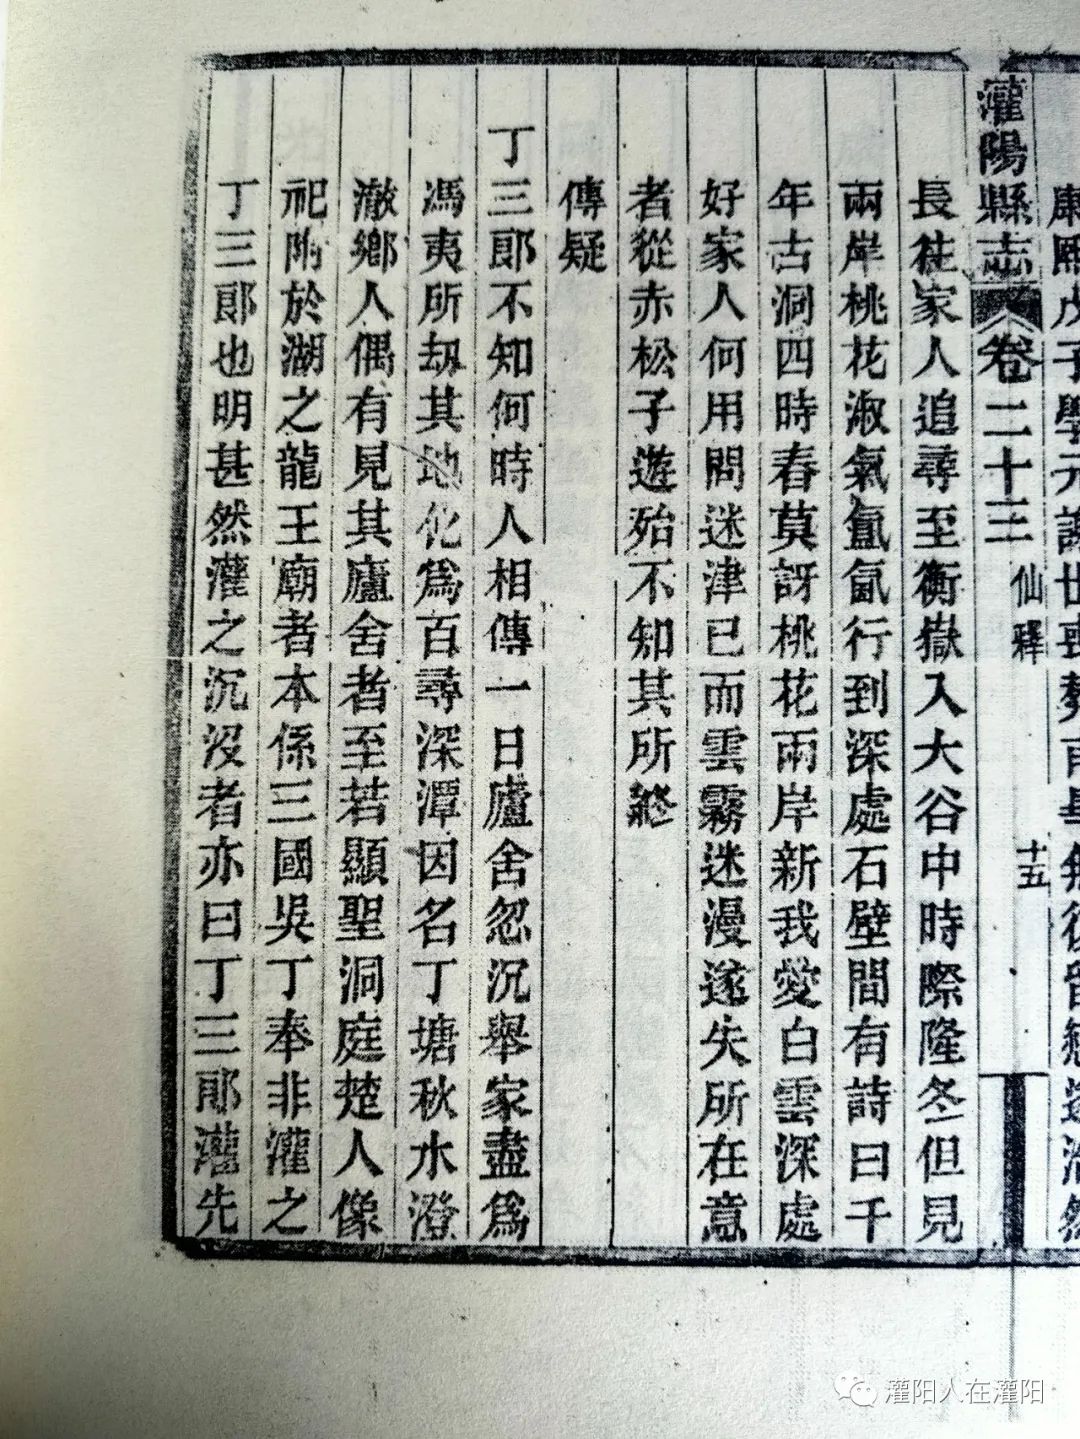 康熙戊子學元
灌陽縣志 卷二十三 仙釋 十五
長往家人追尋至衡嶽入大谷中時際隆冬但見
兩岸桃花淑氣氤氳行到深處石壁間有詩曰千
年古洞四時春莫訝桃花兩岸新我愛白雲深處
好家人何用問迷津已而雲霧迷漫遂失所在意
者從赤松子遊殆不知其所終
傳疑
丁三郎不知何時人相傳一日廬舍忽沉舉家盡爲
馮夷所劫其地化爲百尋深潭因名丁塘秋水澄
澈鄉人偶有見其廬舍者至若顯聖洞庭楚人像
祀附於湖之龍王廟者本係三國吳丁奉非灌之
丁三郎也明甚然灌之沉沒者亦曰丁三郎灌先
灌阳人在灌阳